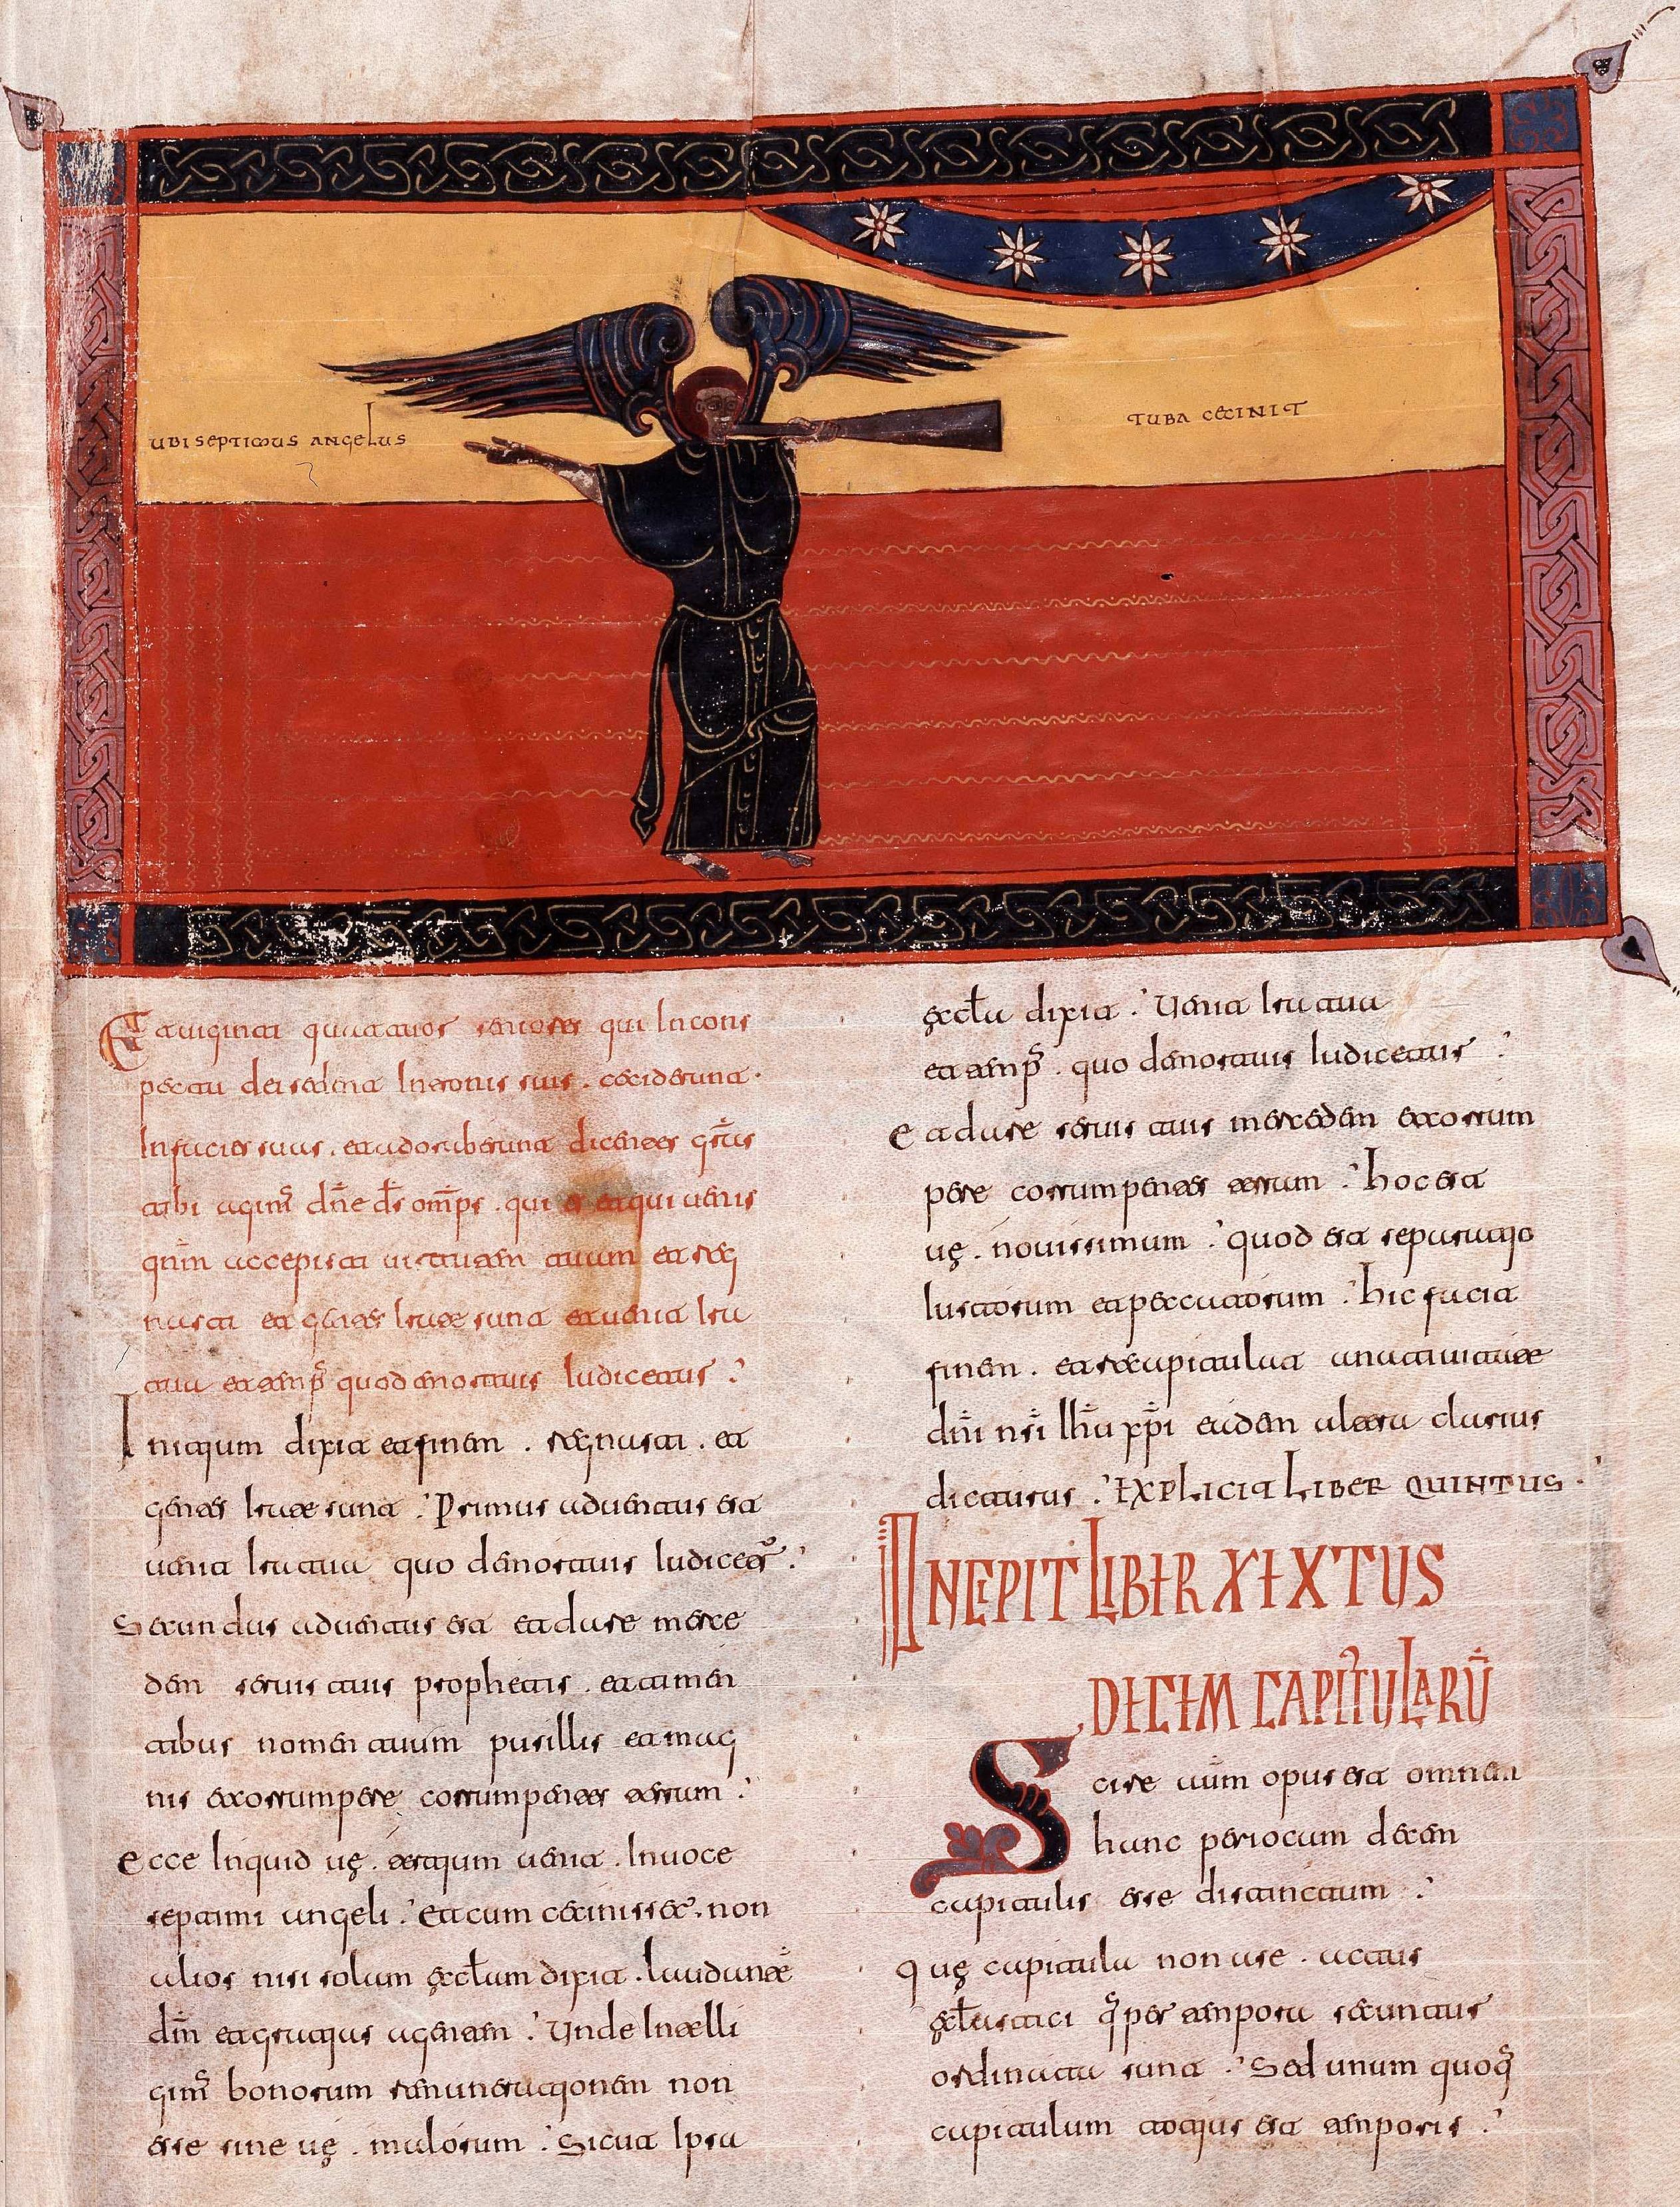 UBI SEPTIMUS ANGELUS
TUBA CECINIT
Et uiginti quattuor seniores qui In cons
pectu dei sedent In tronis suis . ceciderunt .
In facies suas . et adoraberunt dicentes grās
tibi agim̄ dn̄e ds̄ omp̄s . qui es et qui uenis
qnm̄ accepisti uirtutem tuam et reg
nasti et gentes Irate sunt et uenit Ira
tua et temp̄ quo de mortuis Iudicetur :
Initium dixit et finem . regnasti . et
gentes Irate sunt : Primus aduentus est
uenit Ira tua quo de mortuis Iudicet̄ :
Secundus aduentus est et dare merce
dem seruis tuis prophetis . et timen
tibus nomen tuum pusillis et mag
nis et corrumpere corrumpentes terram :
Ecce Inquid uę . tertium uenit . In uoce
septimi angeli : Et cum cecinisset . non
alios nisi solam ęcl̄am dixit . laudante
dm̄ et gratias agentem : Unde Intelli
gim̄ bonorum remunerationem non
esse sine uę . malorum : Sicut Ipsa
ęcl̄a dixit : Uenit Ira tua
et temp̄ . quo de mortuis Iudicetur :
Et dare seruis tuis mercedem et corrum
pere corrumpentes terram : hoc est
uę . nouissimum : quod est separatio
Iustorum et peccatorum : hic facit
finem . et recapitulat a natiuitate
dn̄i nsī Ihū xp̄i eadem alitera clarius
dicturus : EXPLICIT LIBER QUINTUS
INCIPIT LIBER XEXTUS
DECEM CAPITULARŪ
Scire uūm opus est omnem
hunc periocum decem
capitulis esse distinctum :
quę capitula non use . actus
ęcl̄astici q̄ per tempora secuntur
ordinata sunt : Sed unum quoq̄
capitulum totius est temporis :